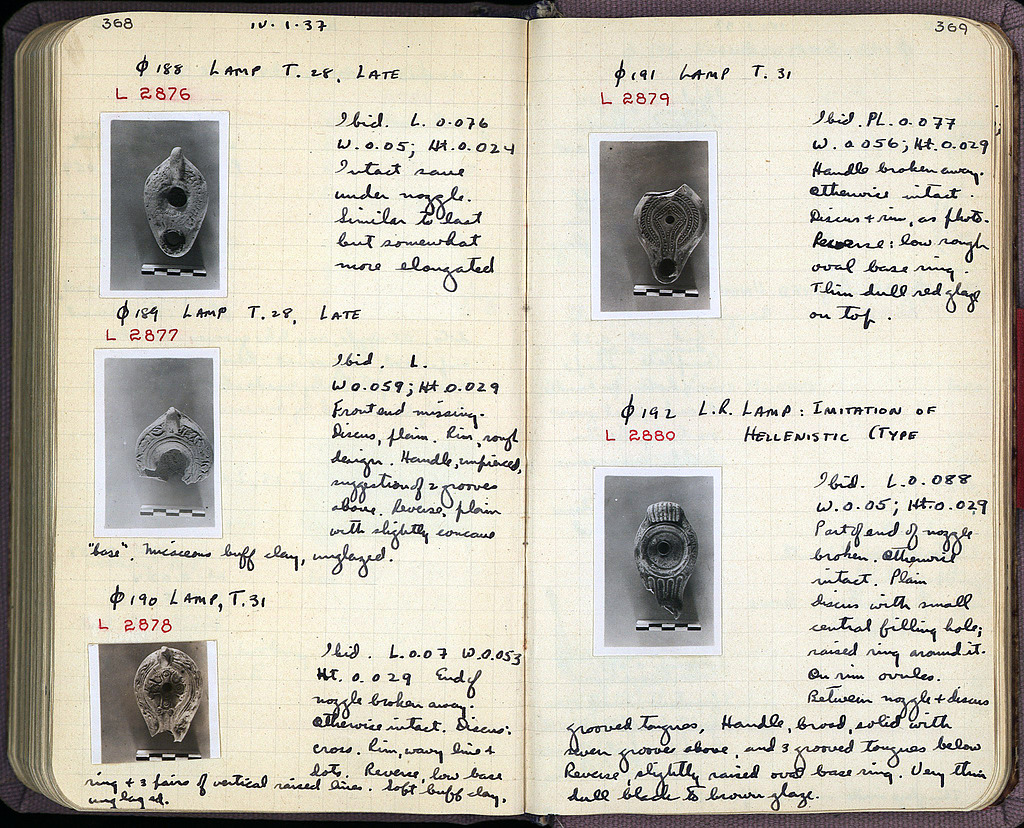 368
IV.1.37
φ188 LAMP T.28, LATE
L 2876
Ibid. L. 0.076
W. 0.05; Ht. 0.024
Intact save
under nozzle.
Similar to last
but somewhat
more elongated
φ189 LAMP T.28, LATE
L 2877
Ibid. L.
W 0.059; Ht 0.029
Front end missing.
Discus, plain. Rim, rough
design. Handle, unpierced,
suggestion of 2 grooves
above. Reverse, plain
with slightly concave
"base". Micaceous buff clay, unglazed.
φ190 LAMP, T.31
L 2878
Ibid. L. 0.07 W. 0.053
Ht. 0.029 End of
nozzle broken away.
Otherwise intact. Discus:
cross. Rim, wavy line +
dots. Reverse, low base
ring + 3 pairs of vertical raised lines. Soft buff clay,
unglazed.
369
φ191 LAMP T.31
L 2879
Ibid. PL. 0.077
W. 0.056; Ht. 0.029
Handle broken away.
Otherwise intact.
Discus + rim, as photo.
Reverse: low rough
oval base ring.
Thin dull red glaze
on top.
φ192 L.R. LAMP: IMITATION OF
L 2880 HELLENISTIC (TYPE
Ibid. L. 0.088
W. 0.05; Ht. 0.029
Part of end of nozzle
broken. Otherwise
intact. Plain
discus with small
central filling hole;
raised ring around it.
On rim ovules.
Between nozzle + discus
grooved tongues, Handle, broad, solid with
seven grooves above, and 3 grooved tongues below
Reverse, slightly raised oval base ring. Very thin
dull black to brown glaze.